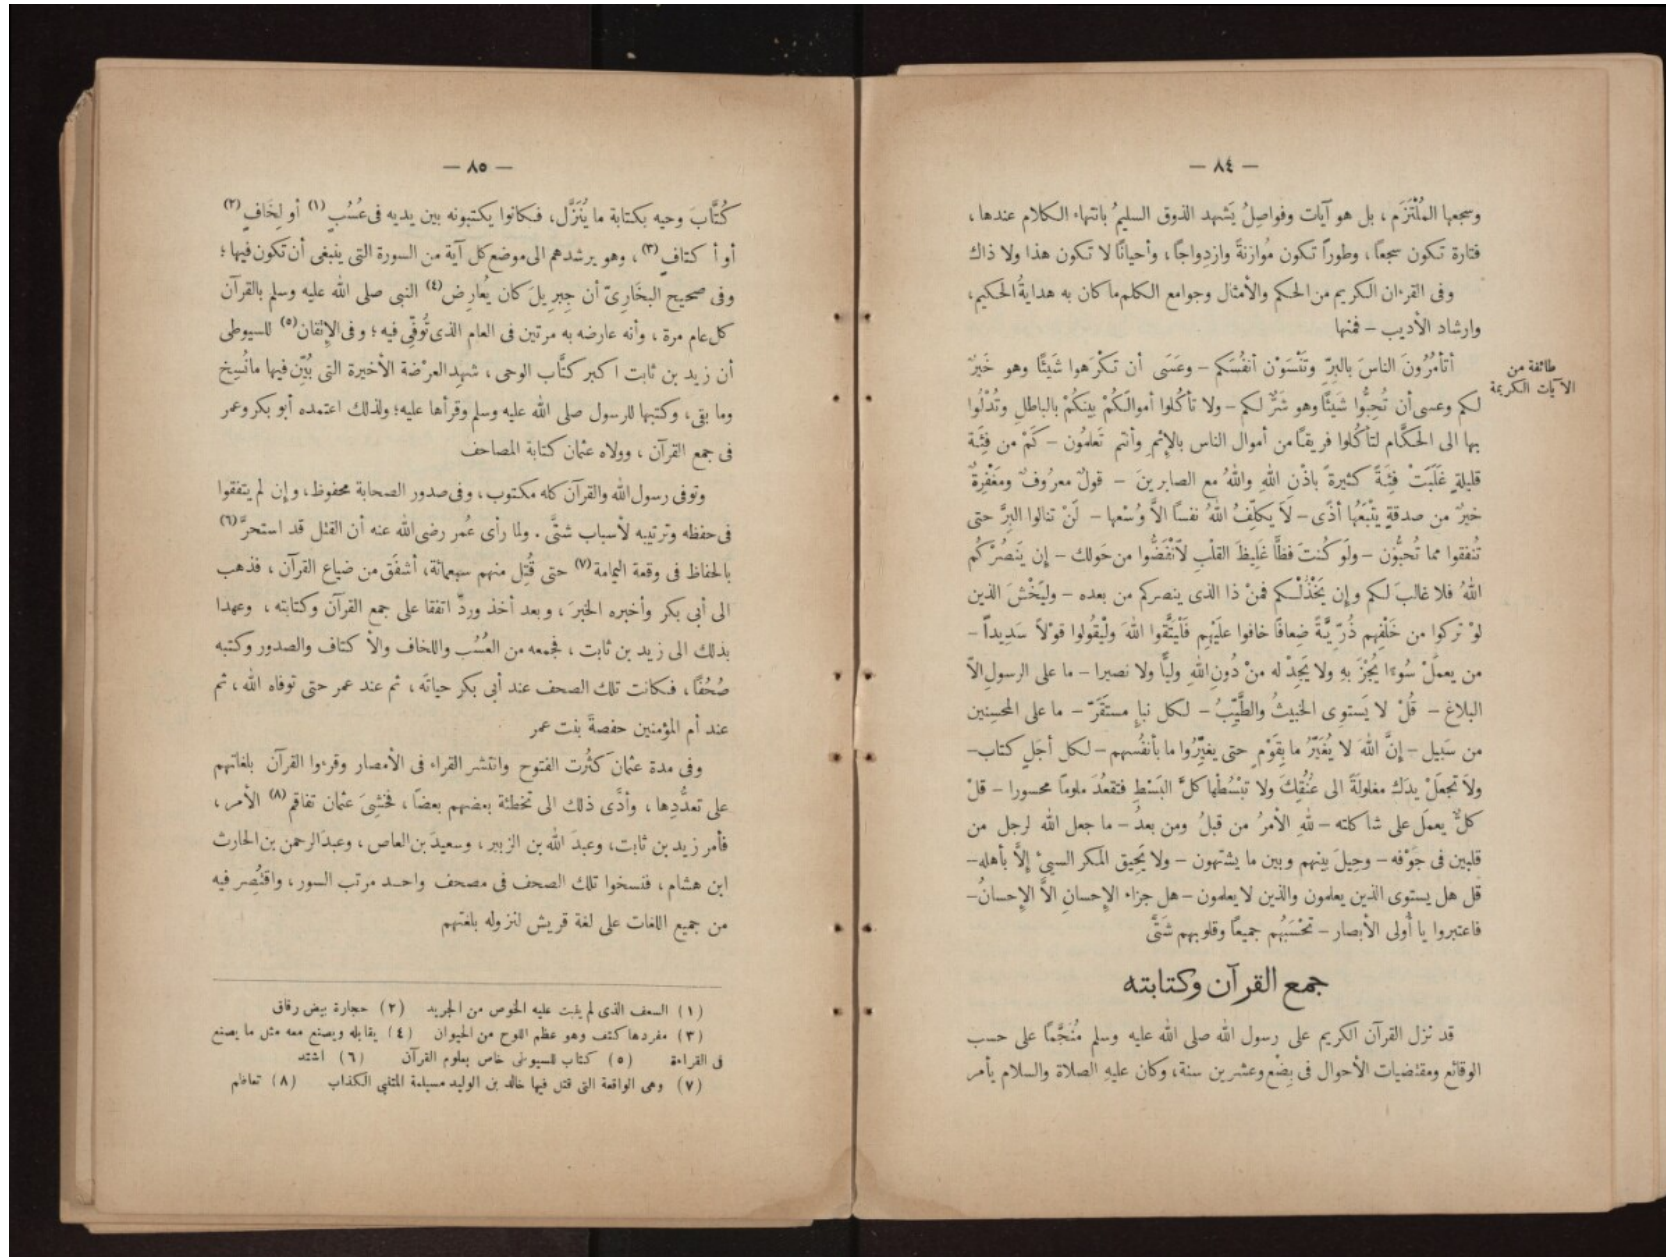 — ٨٤ —
وسجعها المُلْتَزَم ، بل هو آيات وفواصِلُ يَشهد الذوق السليمُ بانتهاء الكلام عندها ،
فتارة تكون سجعًا ، وطوراً تكون مُوازنةً وازدِواجًا ، وأحيانًا لا تكون هذا ولا ذاك
وفى القرءان الكريم من الحكم والأمثال وجوامع الكلم ما كان به هدايةُ الحكيم ،
وارشاد الأديب – فمنها
طائفة من
الآيات الكريمة
أتأمُرُونَ الناسَ بالبِرِّ وتَنْسَوْن أنفُسَكم – وعَسَى أن تَكْرَهوا شَيئًا وهو خَيْرٌ
لكم وعسى أن تُحِبُّوا شَيئًا وهو شَرٌّ لكم – ولا تأكُلوا أموالَكُمْ بينَكُمْ بالباطلِ وتُدْلُوا
بها الى الحَكَّام لتأكُلوا فريقًا من أموال الناس بالإثم وأنتم تَعلمُون – كَمْ من فِئَة
قليلةٍ غَلَبَتْ فِئةً كثيرةً باذْن اللهِ واللهُ مع الصابرينَ – قولٌ معرُوفٌ ومَغْفِرةٌ
خيرٌ من صدقةٍ يَتْبَعُها أذَى – لاَ يكلِّفُ اللهُ نفسًا الاَّ وُسْعها – لَنْ تنالوا البِرَّ حتى
تُنفقوا مما تُحبُّون – ولَو كُنتَ فظًّا غَلِيظَ القلْبِ لاَنْفَضُّوا من حَولك – إن يَنصُرْكُم
اللهُ فلا غالبَ لكم وإن يَخْذُلْكم فمَنْ ذا الذى ينصركم من بعده – وليَخْشَ الذين
لوْ تركوا من خَلْفِهم ذُرِّيَّةً ضِعافًا خافوا علَيْهِم فَلْيَتَّقوا اللهَ ولْيقُولوا قوْلاً سَدِيداً –
من يعملْ سُوءًا يُجْزَ بهِ ولا يَجِدْ له منْ دُونِ اللهِ وليًّا ولا نصيرا – ما على الرسولِ الاّ
البلاغ – قُلْ لا يَستوِى الخبيثُ والطَّيِّبُ – لكل نبإ مستَقَرّ – ما على المحسِنين
من سَبيل – إنَّ اللهَ لا يُغَيِّرُ ما بِقَوْمٍ حتى يغيِّرُوا ما بأنفُسهم – لكل أجَلٍ كتاب –
ولاَ تجعلْ يدَكَ مغلولَةً الى عُنُقِكَ ولا تبْسُطْها كلَّ البَسْطِ فتقعُدَ ملومًا محسورا – قلْ
كلٌّ يعمَل على شاكلته – للهِ الأمرُ من قبلُ ومن بعدُ – ما جعل الله لرجل من
قلبين فى جَوْفه – وحِيلَ بينهم وبين ما يشتهون – ولا يَحِيق المَكر السيئ إلَّا بأهله –
قل هل يستوى الذين يعلمون والذين لا يعلمون – هل جزاء الإحسانِ الاَّ الإحسانُ –
فاعتبروا يا أُولى الأبصار – تحْسَبُهم جميعًا وقلوبهم شتَّى
جمع القرآن وكتابته
قد نزل القرآن الكريم على رسول الله صلى الله عليه وسلم مُنَجَّمًا على حسب
الوقائع ومقتضيات الأحوال فى بِضْع وعشرين سنة، وكان عليهِ الصلاة والسلام يأمر
— ٨٥ —
كُتَّابَ وحيه بكتابة ما يُنَزَّل، فكانوا يكتبونه بين يديه فى عُسُبٍ (١) أو لِخَافٍ (٢)
أو أكتافٍ (٣) ، وهو يرشدهم الى موضع كل آية من السورة التى ينبغى أن تكون فيها ؛
وفى صحيح البخَارِىّ أن جِبرِيلَ كان يُعارِض (٤) النبى صلى الله عليه وسلم بالقرآن
كل عام مرة ، وأنه عارضه به مرتين فى العام الذى تُوفِّى فيه ؛ وفى الإتقان (٥) للسيوطى
أن زيد بن ثابت اكبر كتَّاب الوحى ، شهِد العرْضة الأخيرة التى بُيِّن فيها ما نُسِخ
وما بقى، وكتبها للرسول صلى الله عليه وسلم وقرأها عليه؛ ولذلك اعتمده أبو بكر وعمر
فى جمع القرآن ، وولاه عثمان كتابة المصاحف
وتوفى رسول الله والقرآن كله مكتوب، وفى صدور الصحابة محفوظ، وإن لم يتفقوا
فى حفظه وترتيبه لأسباب شتَّى . ولما رأى عُمر رضى الله عنه أن القتل قد استحرَّ (٦)
بالحفاظ فى وقعة اليمامة (٧) حتى قُتِل منهم سبعمائة، أشفَق من ضياع القرآن ، فذهب
الى أبى بكر وأخبره الخبرَ ، وبعد أخذ وردٍّ اتفقا على جمع القرآن وكتابته ، وعهدا
بذلك الى زيد بن ثابت ، فجمعه من العُسُب واللخاف والأكتاف والصدور وكتبه
صُحُفًا ، فكانت تلك الصحف عند أبى بكر حياتَه ، ثم عند عمر حتى توفاه الله ، ثم
عند أم المؤمنين حفصةَ بنت عمر
وفى مدة عثمان كثُرت الفتوح وانتشر القراء فى الأمصار وقرءوا القرآن بلغاتهم
على تعدُّدِها ، وأدَّى ذلك الى تخطئة بعضهم بعضًا ، فخشِىَ عثمان تفاقم (٨) الأمر ،
فأمر زيد بن ثابت، وعبدَ الله بن الزبير ، وسعيدَ بن العاص ، وعبدَ الرحمن بن الحارث
ابن هشام ، فنسخوا تلك الصحف فى مصحف واحد مرتب السور ، واقتُصِر فيه
من جميع اللغات على لغة قريش لنزوله بلغتهم
(١) السعف الذى لم ينبت عليه الخوص من الجريد (٢) حجارة بيض رقاق
(٣) مفردها كتف وهو عظم اللوح من الحيوان (٤) يقابله ويصنع معه مثل ما يصنع
فى القراءة (٥) كتاب للسيوطى خاص بعلوم القرآن (٦) اشتد
(٧) وهى الواقعة التى قتل فيها خالد بن الوليد مسيلمة المتنبى الكذاب (٨) تعاظم